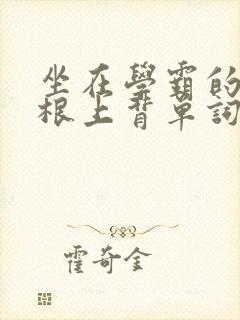 坐在學霸的
根上背單詞
霍奇金